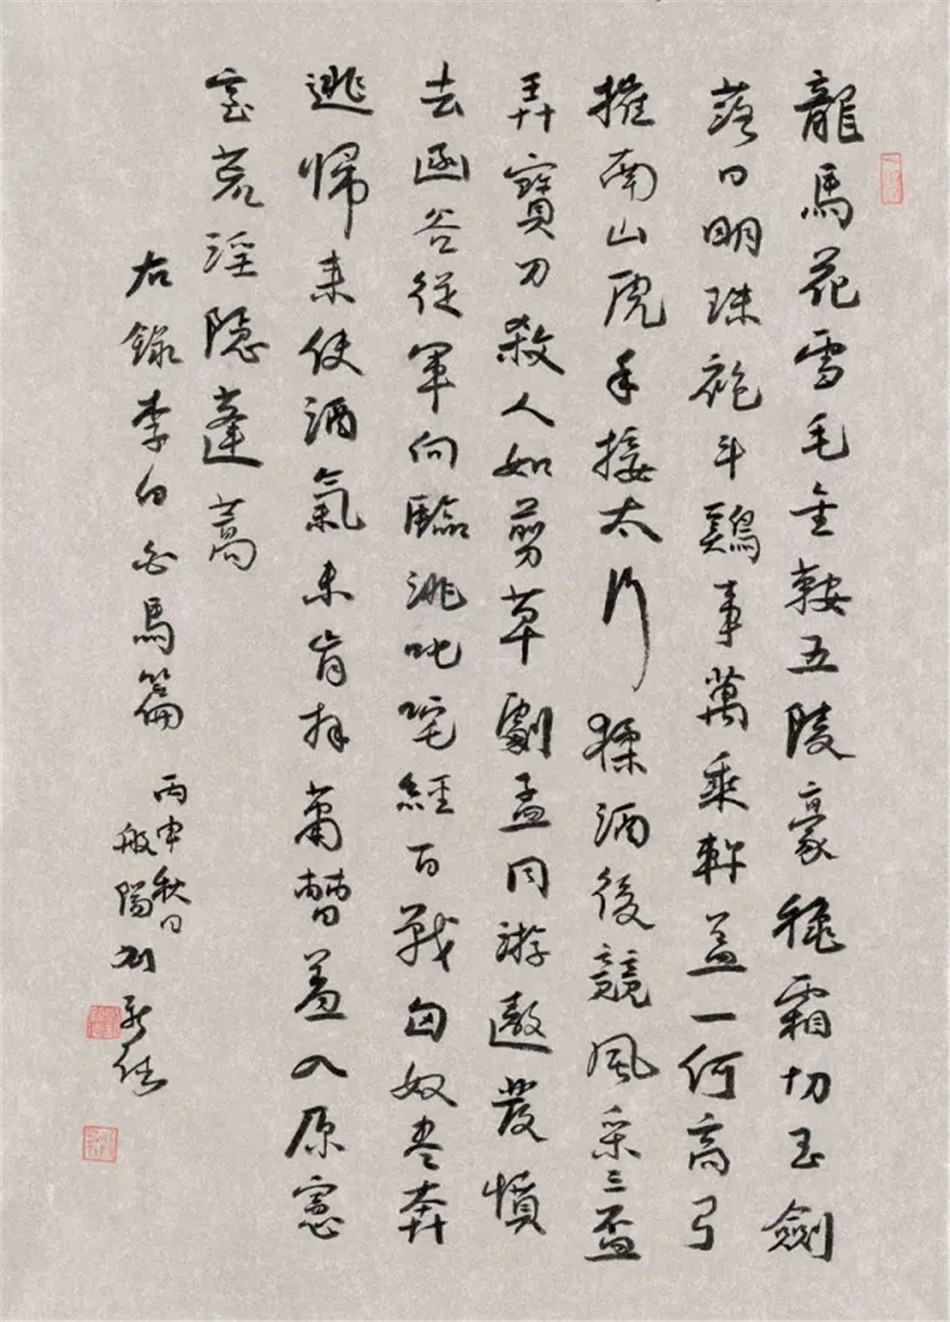 龍馬花雪毛金鞍五陵豪穐霜切玉劍
落日明珠袍斗鷄事萬乘軒蓋一何高弓
摧南山虎手接太行猱酒後競風采三盃
弄寶刀殺人如剪草劇孟同游遨發憤
去函谷從軍向臨洮叱咤經百戰匈奴盡奔
逃歸來使酒氣未肯拜蕭曹羞入原憲
室荒淫隱蓬蒿
右錄李白白馬篇
丙申秋日
般陽